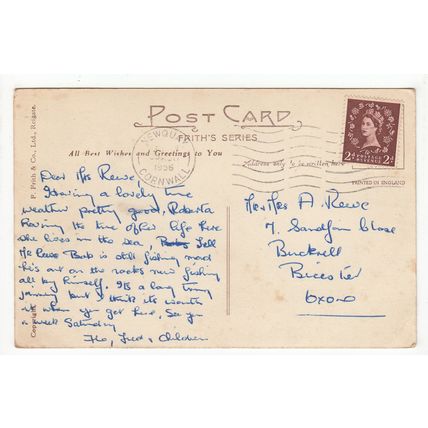 POST CARD
FRITH'S SERIES
All Best Wishes and Greetings to You
Address only to be written here
PRINTED IN ENGLAND
NEWQUAY
1956
CORNWALL
2d POSTAGE REVENUE 2d
F. Frith & Co., Ltd., Reigate.
Copyright
Dear Mrs Reeve,
Having a lovely time
weather pretty good, Roberta
Having the time of her life here
she lives in the sea, Tell
Mr Reeve Bob is still fishing mad
he's out on the rocks now fishing
all by himself. It's a long
journey but I think its worth
it when you get here, See you
a week Saturday
Flo, Fred & Children
Mr & Mrs A. Reeve
7, Close
Bucknell
Bicester
Oxon